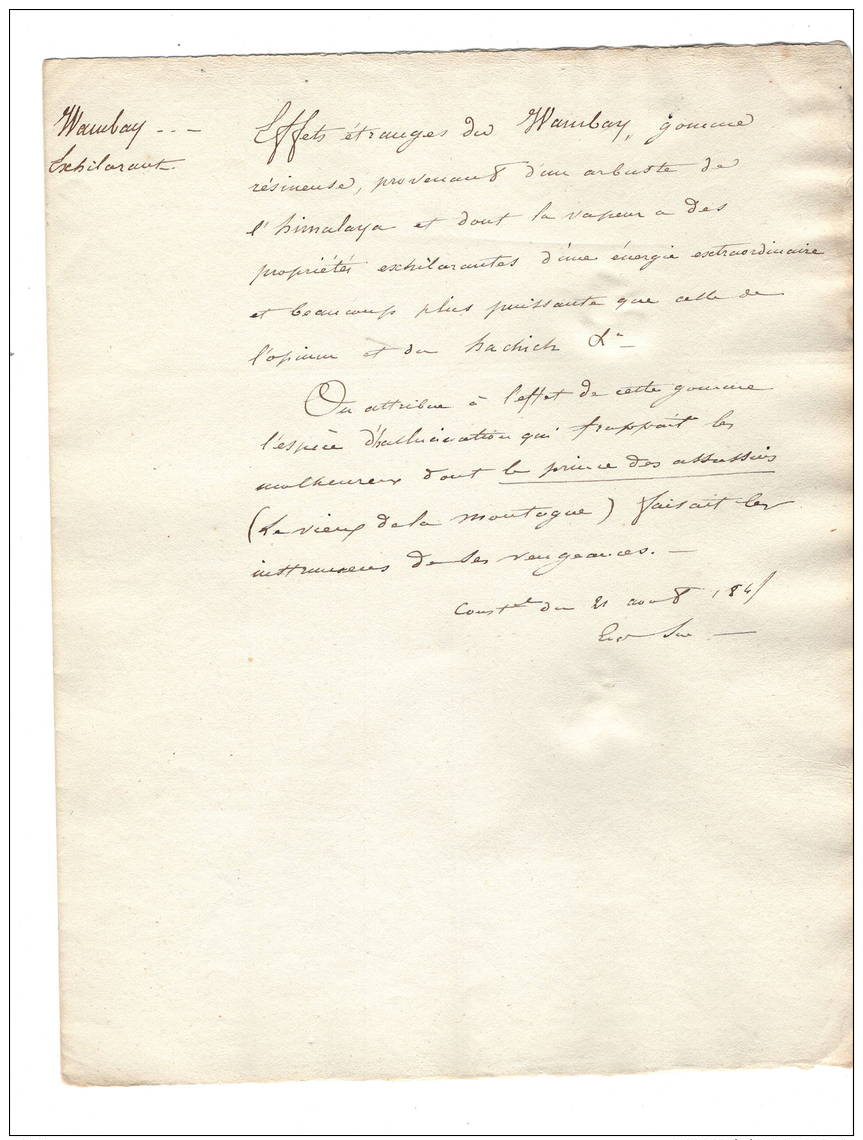 Wambay - - -
Exhilarant.
Effets étranges du Wambay, gomme
résineuse, provenant d'un arbuste de
l'himalaya et dont la vapeur a des
propriétés exhilarantes d'une énergie extraordinaire
et beaucoup plus puissante que celle de
l'opium et du hachich &a
On attribue à l'effet de cette gomme
l'espèce d'hallucination qui frappait les
malheureux dont le prince des assassins
(le vieux de la montagne) faisait les
instrumens de ses vengeances. -
Const.el du 21 aout 1845
Eug Sue -